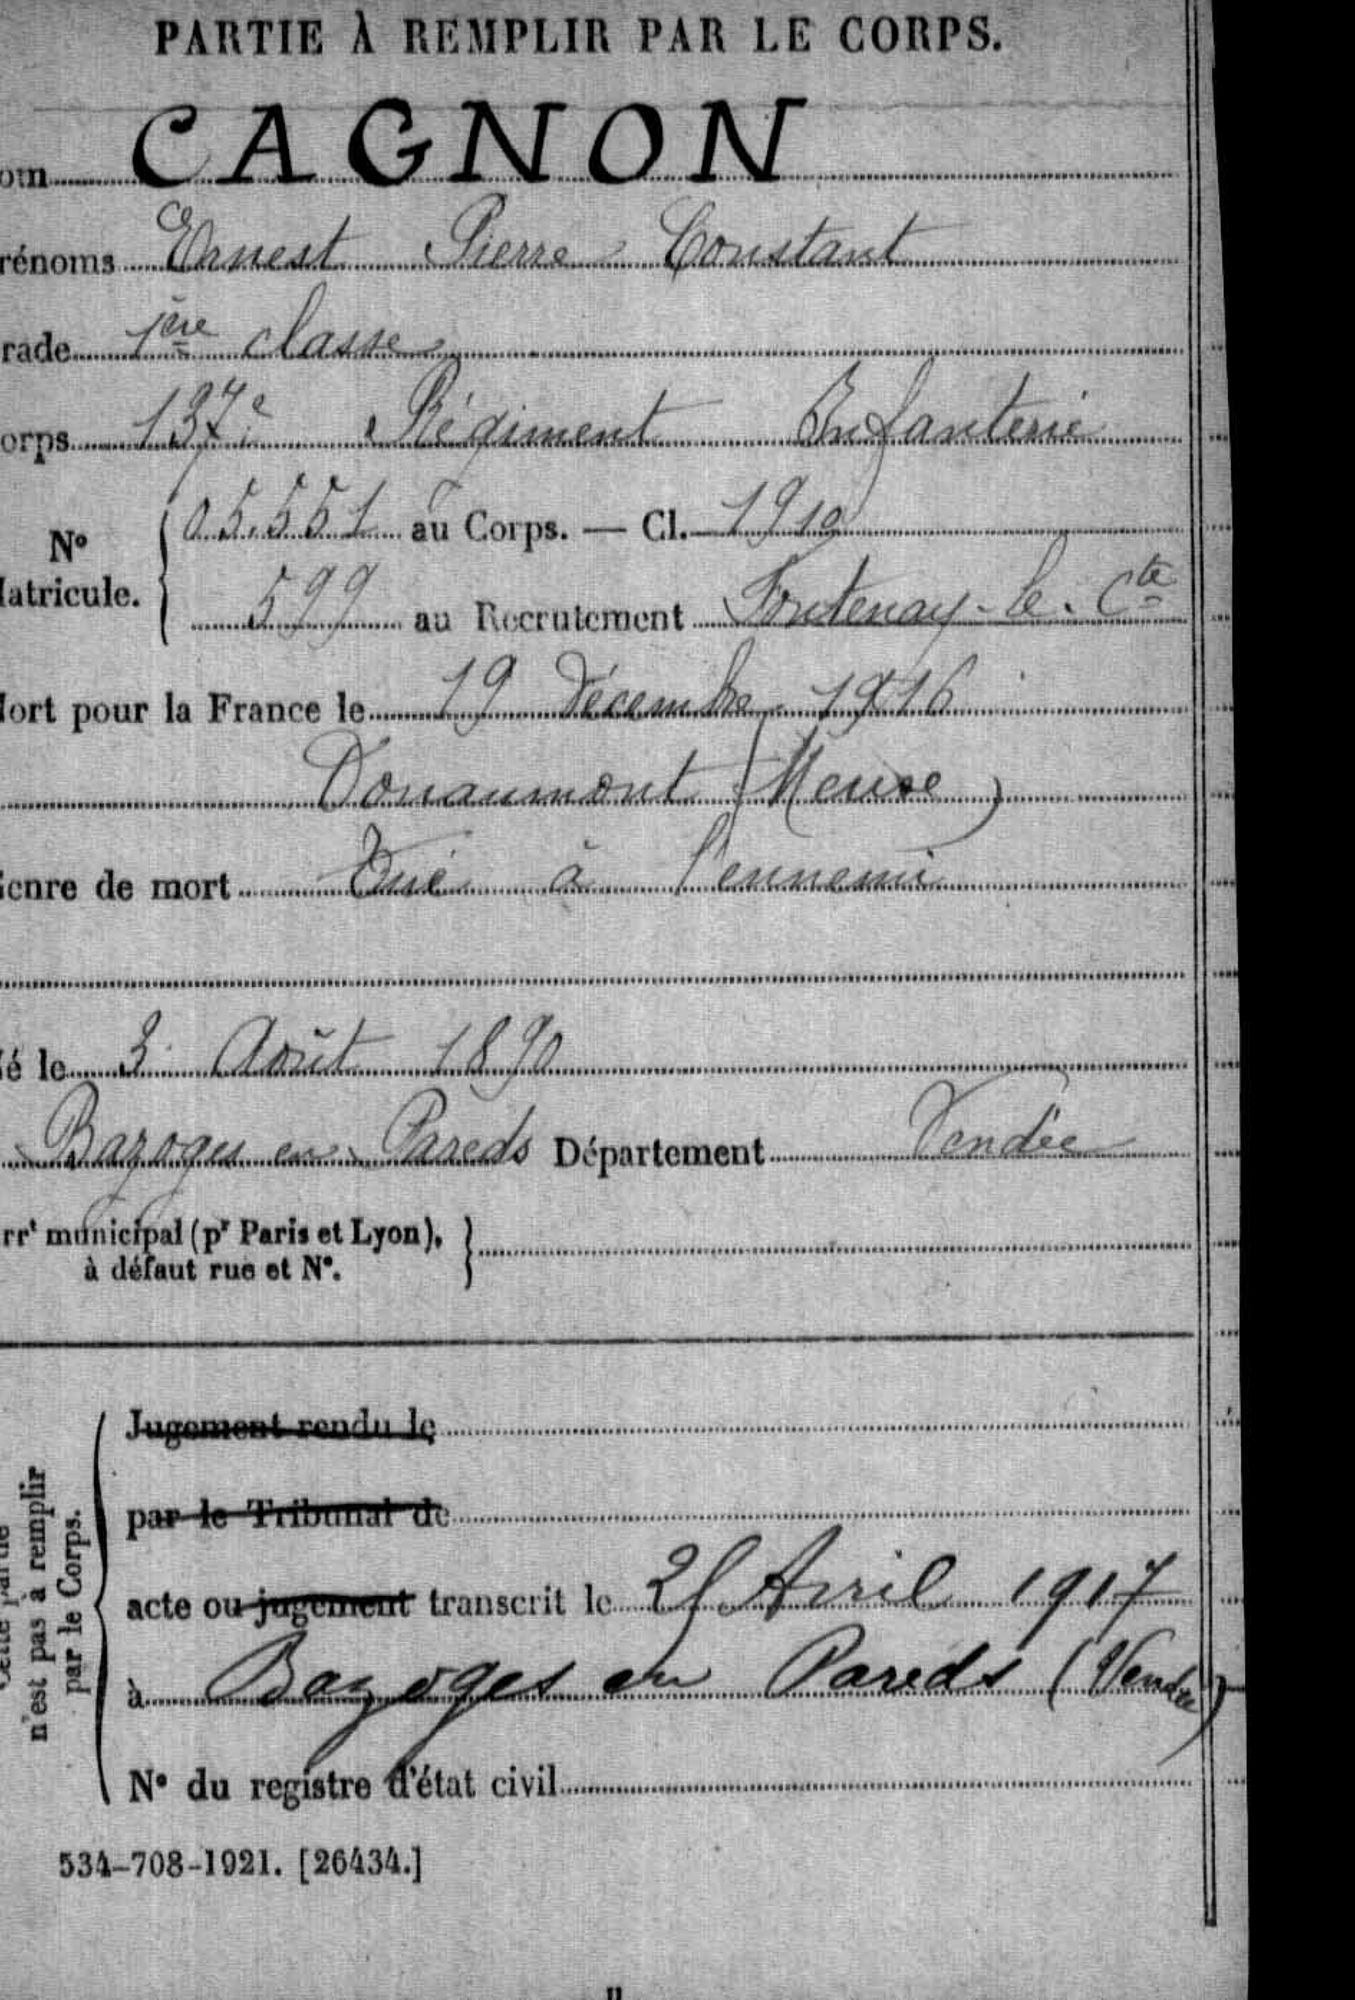 PARTIE À REMPLIR PAR LE CORPS.
om CAGNON
rénoms Ernest Pierre Constant
rade 1ère classe
orps 137e Régiment Infanterie
N° Matricule. { 05.551 au Corps. — Cl. 1910
599 au Recrutement Fontenay-le-Cte
Mort pour la France le 19 Décembre 1916
Douaumont (Meuse)
Genre de mort Tué à l'ennemi
é le 3 Août 1890
Bazoges en Pareds Département Vendée
rrt municipal (pr Paris et Lyon),
à défaut rue et N°. }
Cette partie
n'est pas à remplir
par le Corps.
Jugement rendu le
par le Tribunal de
acte ou jugement transcrit le Avril 1917
à Bazoges en Pareds (Vendée)
N° du registre d'état civil
534-708-1921. [26434.]